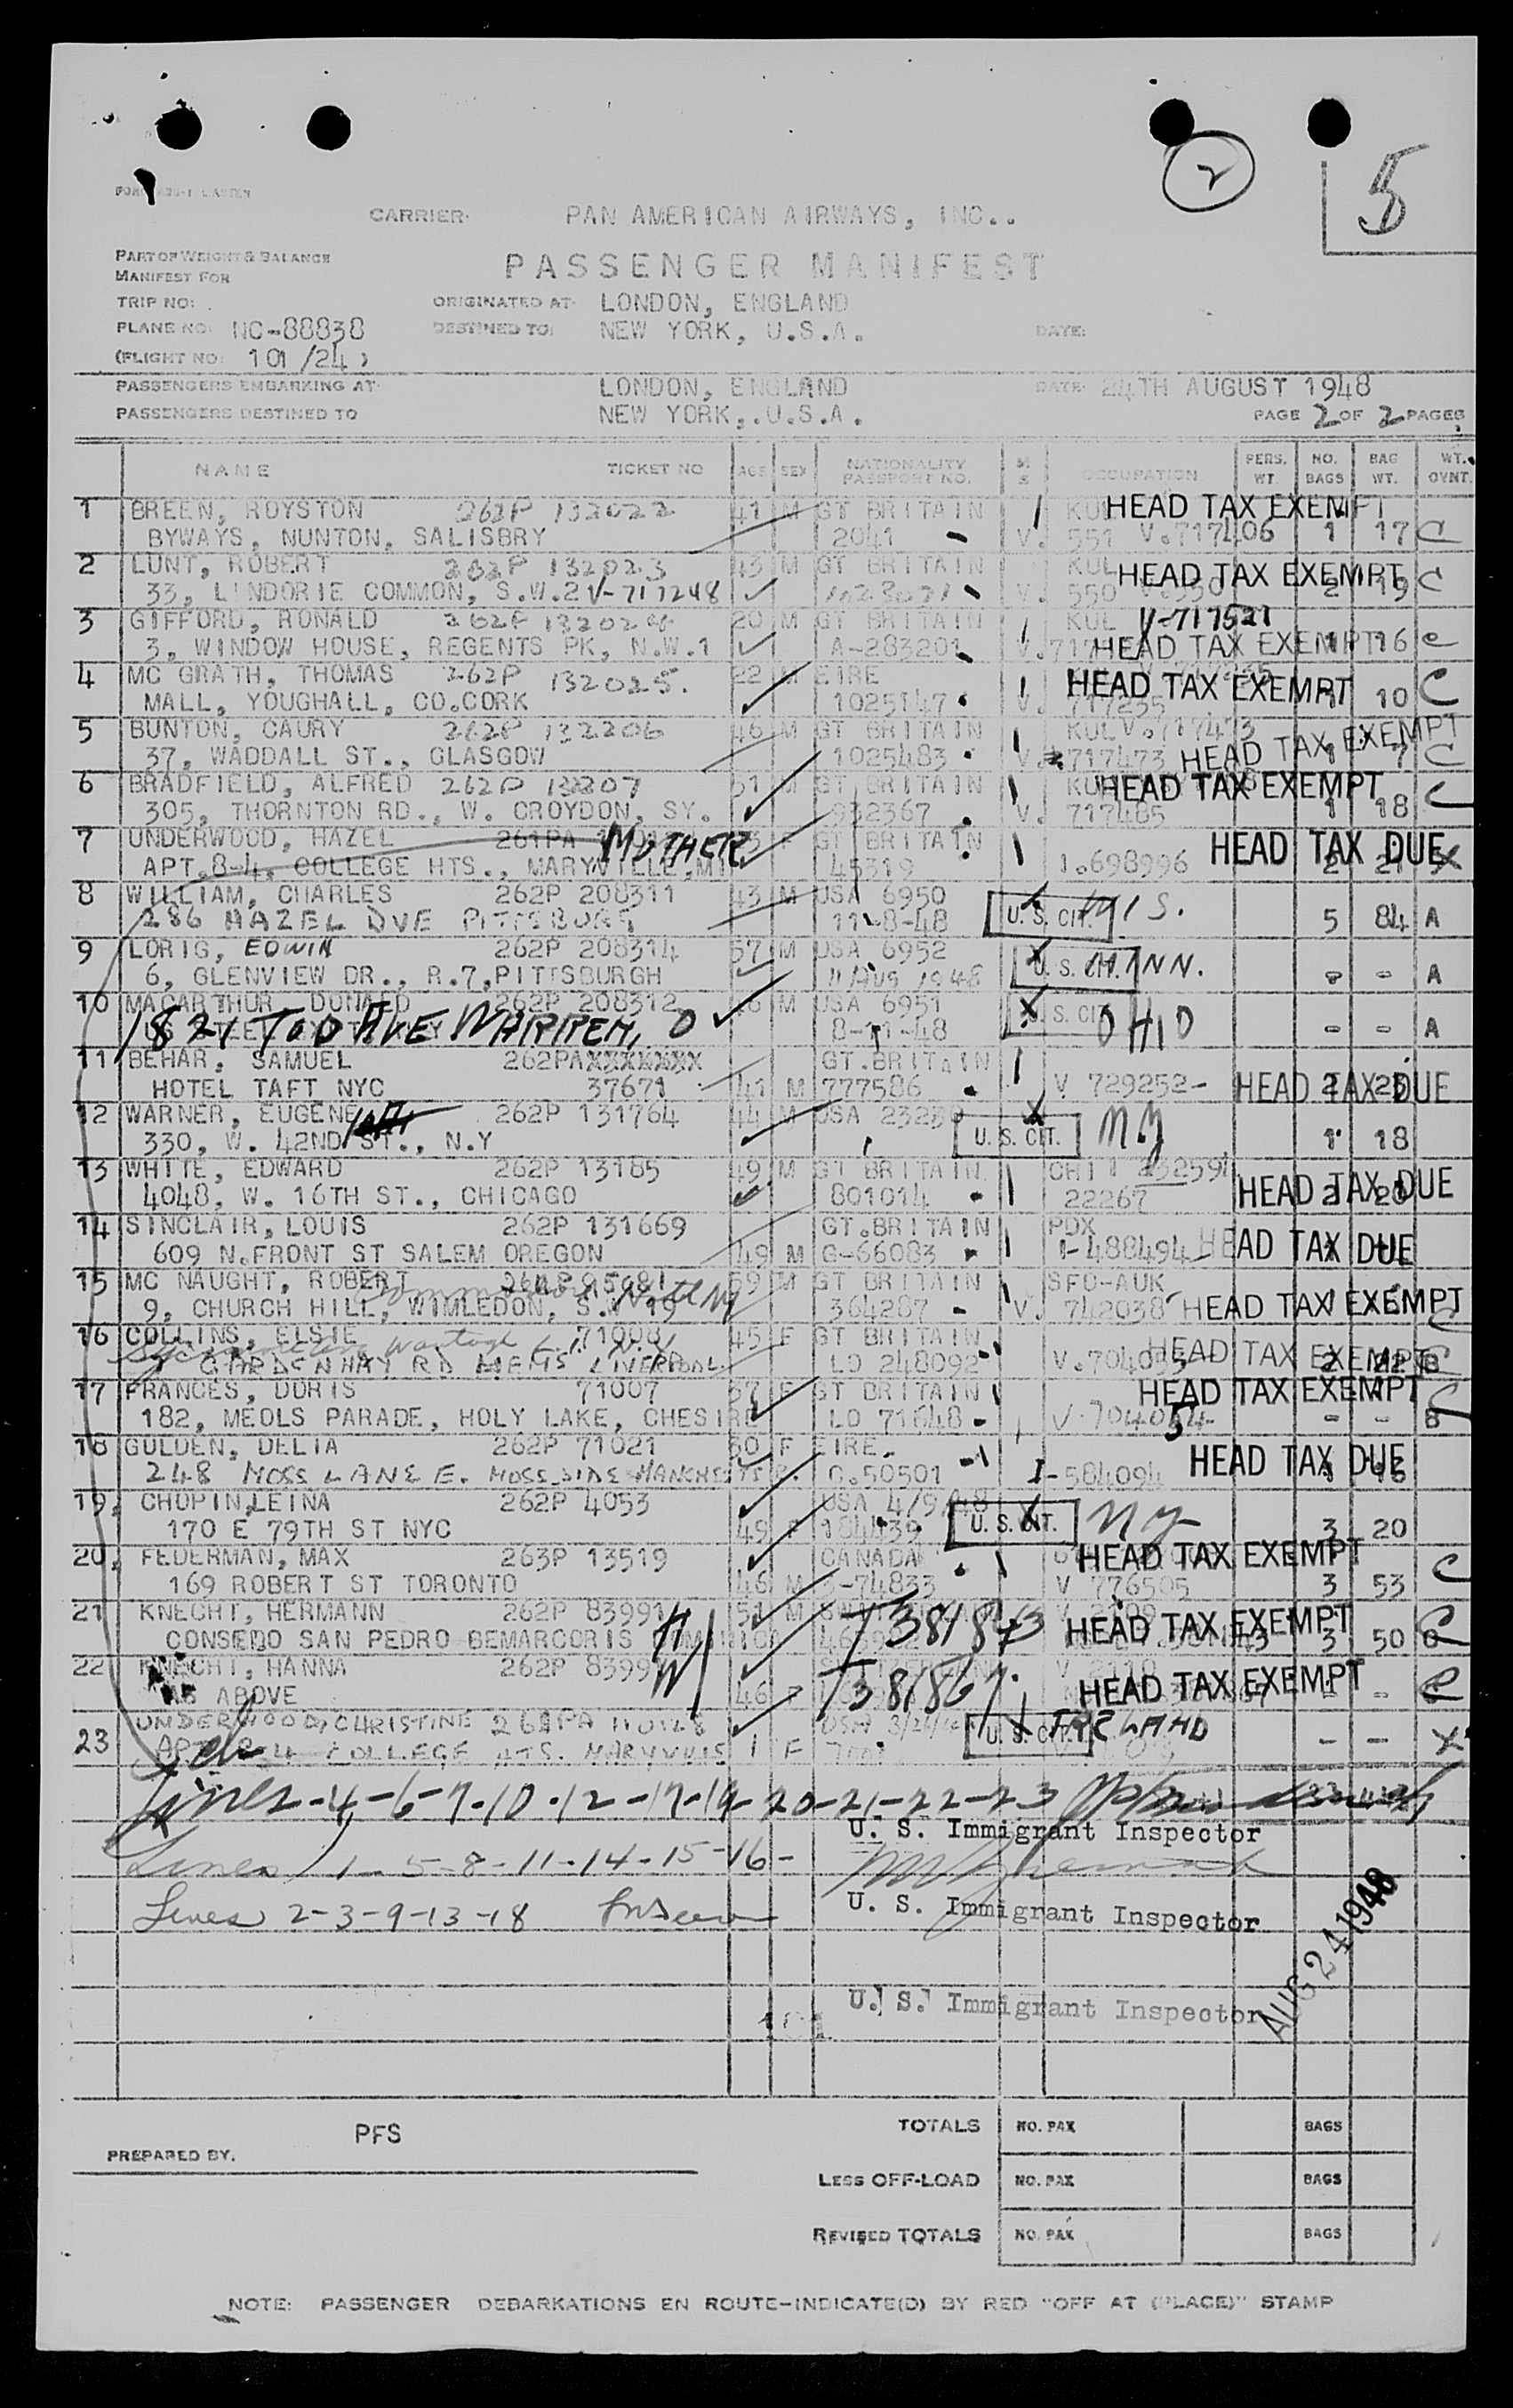 2
5
CARRIER: PAN AMERICAN AIRWAYS, INC..
PART OF WEIGHT & BALANCE
MANIFEST FOR
PASSENGER MANIFEST
TRIP NO: ORIGINATED AT: LONDON, ENGLAND
PLANE NO: NC-88838 DESTINED TO: NEW YORK, U.S.A. DATE:
(FLIGHT NO: 101/24)
PASSENGERS EMBARKING AT: LONDON, ENGLAND DATE: 24TH AUGUST 1948
PASSENGERS DESTINED TO NEW YORK,.U.S.A. PAGE 2 OF 2 PAGES
NAME TICKET NO AGE SEX NATIONALITY PASSPORT NO. M S OCCUPATION PERS. WT. NO. BAGS BAG WT. WT. CVNT.
1 BREEN, ROYSTON 262P 132022 41 M GT BRITAIN KUL HEAD TAX EXEMPT
BYWAYS, NUNTON, SALISBRY 2041 V. 551 V.717406 1 17 C
2 LUNT, ROBERT 262P 132023 43 M GT BRITAIN KUL HEAD TAX EXEMPT
33, LINDORIE COMMON, S.W.2 V-717248 V. 550 2 19 C
3 GIFFORD, RONALD 262P 132024 20 M GT BRITAIN KUL V-717521
3, WINDOW HOUSE, REGENTS PK, N.W.1 A-283201 HEAD TAX EXEMPT 1 16 C
4 MC GRATH, THOMAS 262P 132025. 22 M EIRE HEAD TAX EXEMPT
MALL, YOUGHALL, CO.CORK 1025147 V. 717235 10 C
5 BUNTON, CAURY 262P 132206 46 M GT BRITAIN KUL V.717473
37, WADDALL ST., GLASGOW 1025483 V. 717473 HEAD TAX EXEMPT 7 C
6 BRADFIELD, ALFRED 262P 13207 51 M GT BRITAIN HEAD TAX EXEMPT
305, THORNTON RD., W. CROYDON, SY. 932367 V. 717485 1 18 C
7 UNDERWOOD, HAZEL 261PA MOTHER F GT BRITAIN HEAD TAX DUE
APT.8-4, COLLEGE HTS., MARYVILLE,M 45319 I.698996 2 21 X
8 WILLIAM, CHARLES 262P 208311 43 M USA 6950 U. S. CIT. WIS.
286 HAZEL DVE PITTSBURG 11-8-48 5 84 A
9 LORIG, EDWIN 262P 208314 57 M USA 6952 U. S. CIT. MINN.
6, GLENVIEW DR., R.7,PITTSBURGH 11 AUG 1948 - - A
10 MACARTHUR, DONALD 262P 208312 M USA 6951 U. S. CIT. OHIO
1821 TOD AVE WARREN, O 8-11-48 - - A
11 BEHAR, SAMUEL 262PAXXXXXXX GT.BRITAIN
HOTEL TAFT NYC 37671 41 M 777586 V 729252- HEAD TAX DUE
12 WARNER, EUGENE 262P 131764 44 M USA U. S. CIT. NY
330, W. 42ND ST., N.Y 1 18
13 WHITE, EDWARD 262P 13185 49 M GT BRITAIN CHI
4048, W. 16TH ST., CHICAGO 801014 22267 HEAD TAX DUE
14 SINCLAIR, LOUIS 262P 131669 GT.BRITAIN PDX
609 N.FRONT ST SALEM OREGON 49 M C-66083 I-488494 HEAD TAX DUE
15 MC NAUGHT, ROBERT 59 M GT BRITAIN SFO-AUK
9, CHURCH HILL, WIMLEDON, S.W. 19 364287 V. 742038 HEAD TAX EXEMPT
16 COLLINS, ELSIE 71008 45 F GT BRITAIN HEAD TAX EXEMPT
LIVERPOOL. LO 248092 2 22 B
17 FRANCES, DORIS 71007 57 F GT BRITAIN HEAD TAX EXEMPT
182, MEOLS PARADE, HOLY LAKE, CHESIRE LO 71648 - - B
18 GULDEN, DELIA 262P 71021 50 F EIRE. HEAD TAX DUE
248 MOSS LANE E. MOSS SIDE MANCHESTER. C.50501 I-584094
19, CHOPIN,LEINA 262P 4053 USA 4/9/48 U. S. CIT. NY
170 E 79TH ST NYC 49 F 184439 3 20
20, FEDERMAN, MAX 263P 13519 CANADA HEAD TAX EXEMPT
169 ROBERT ST TORONTO 46 M -74833 V 776505 3 53 C
21 KNECHT, HERMANN 262P 83991 H 51 M T381873 HEAD TAX EXEMPT
CONSEDO SAN PEDRO BEMARCORIS 3 50 C
22 KNECHT, HANNA 262P 8399 W T381867. V 2110 HEAD TAX EXEMPT
AS ABOVE 46 F - C
23 UNDERWOOD, CHRISTINE U. S. CIT. IRELAND
COLLEGE HTS. 1 F - - X
Lines-4-6-7-10-12-17-19-20-21-22-23
U. S. Immigrant Inspector
Lines 1-5-8-11-14-15-16-
U. S. Immigrant Inspector
Lines 2-3-9-13-18
U. S. Immigrant Inspector
AUG 24 1948
PREPARED BY. PFS
TOTALS NO. PAX BAGS
LESS OFF-LOAD NO. PAX BAGS
REVISED TOTALS NO. PAX BAGS
NOTE: PASSENGER DEBARKATIONS EN ROUTE-INDICATE(D) BY RED "OFF AT (PLACE)" STAMP